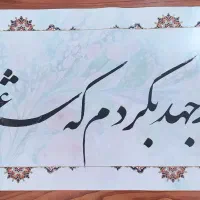 جهد بکردم که